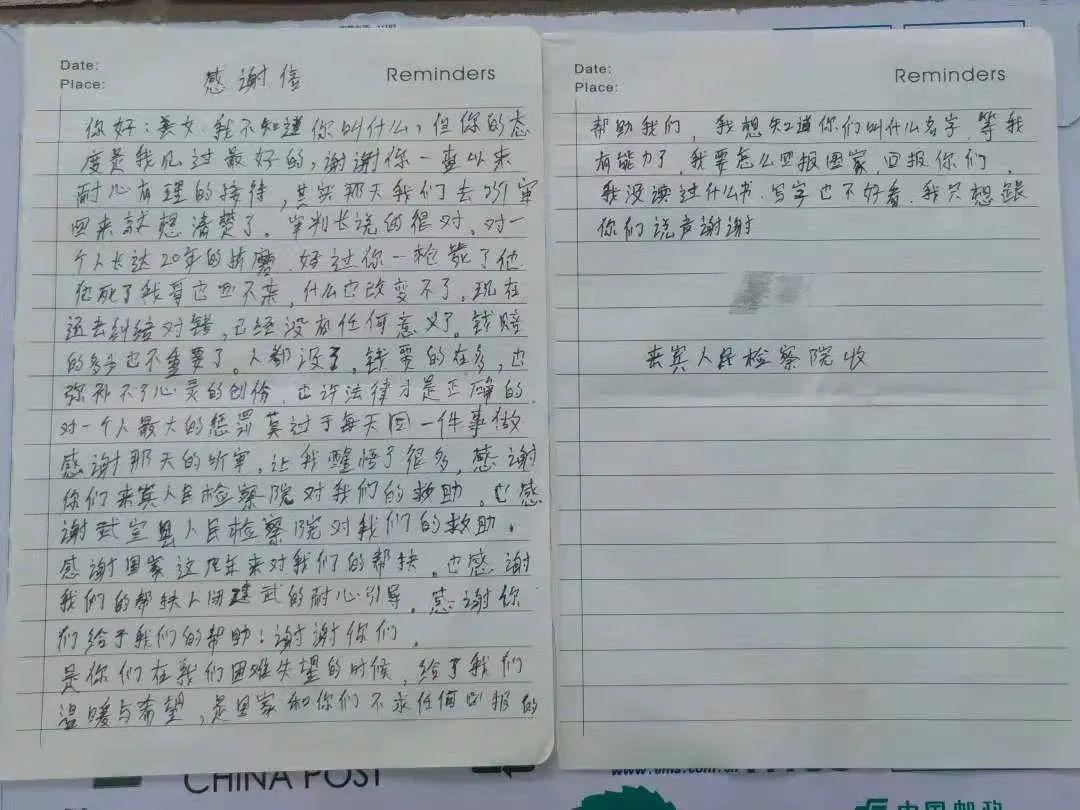 Date:
Place:
感谢信
Reminders
你好：美女.我不知道你叫什么,但你的态
度是我见过最好的,谢谢你一直以来
耐心有理的接待,其实那天我们去听审
回来就想清楚了。审判长说的很对.对一
个人长达20年的折磨.好过你一枪毙了他
他死了我哥也回不来,什么也改变不了,现在
还去纠结对错,已经没有任何意义了。钱赔
的多少也不重要了。人都没了,钱要的在多,也
弥补不了心灵的创伤.也许法律才是正确的.
对一个人最大的惩罚莫过于每天同一件事做
感谢那天的听审,让我醒悟了很多,感谢
你们来宾人民检察院对我们的救助。也感
谢武宣县人民检察院对我们的救助.
感谢国家这几年来对我们的帮扶.也感谢
我们的帮扶人闭建武的耐心引导。感谢你
们给于我们的帮助:谢谢你们.
是你们在我们困难失望的时候,给了我们
温暖与希望,是国家和你们不求任何回报的
Date:
Place:
Reminders
帮助我们,我想知道你们叫什么名字.等我
有能力了,我要怎么回报国家,回报你们.
我没读过什么书.写字也不好看.我只想跟
你们说声谢谢
来宾人民检察院收
CHINA POST
中国邮政